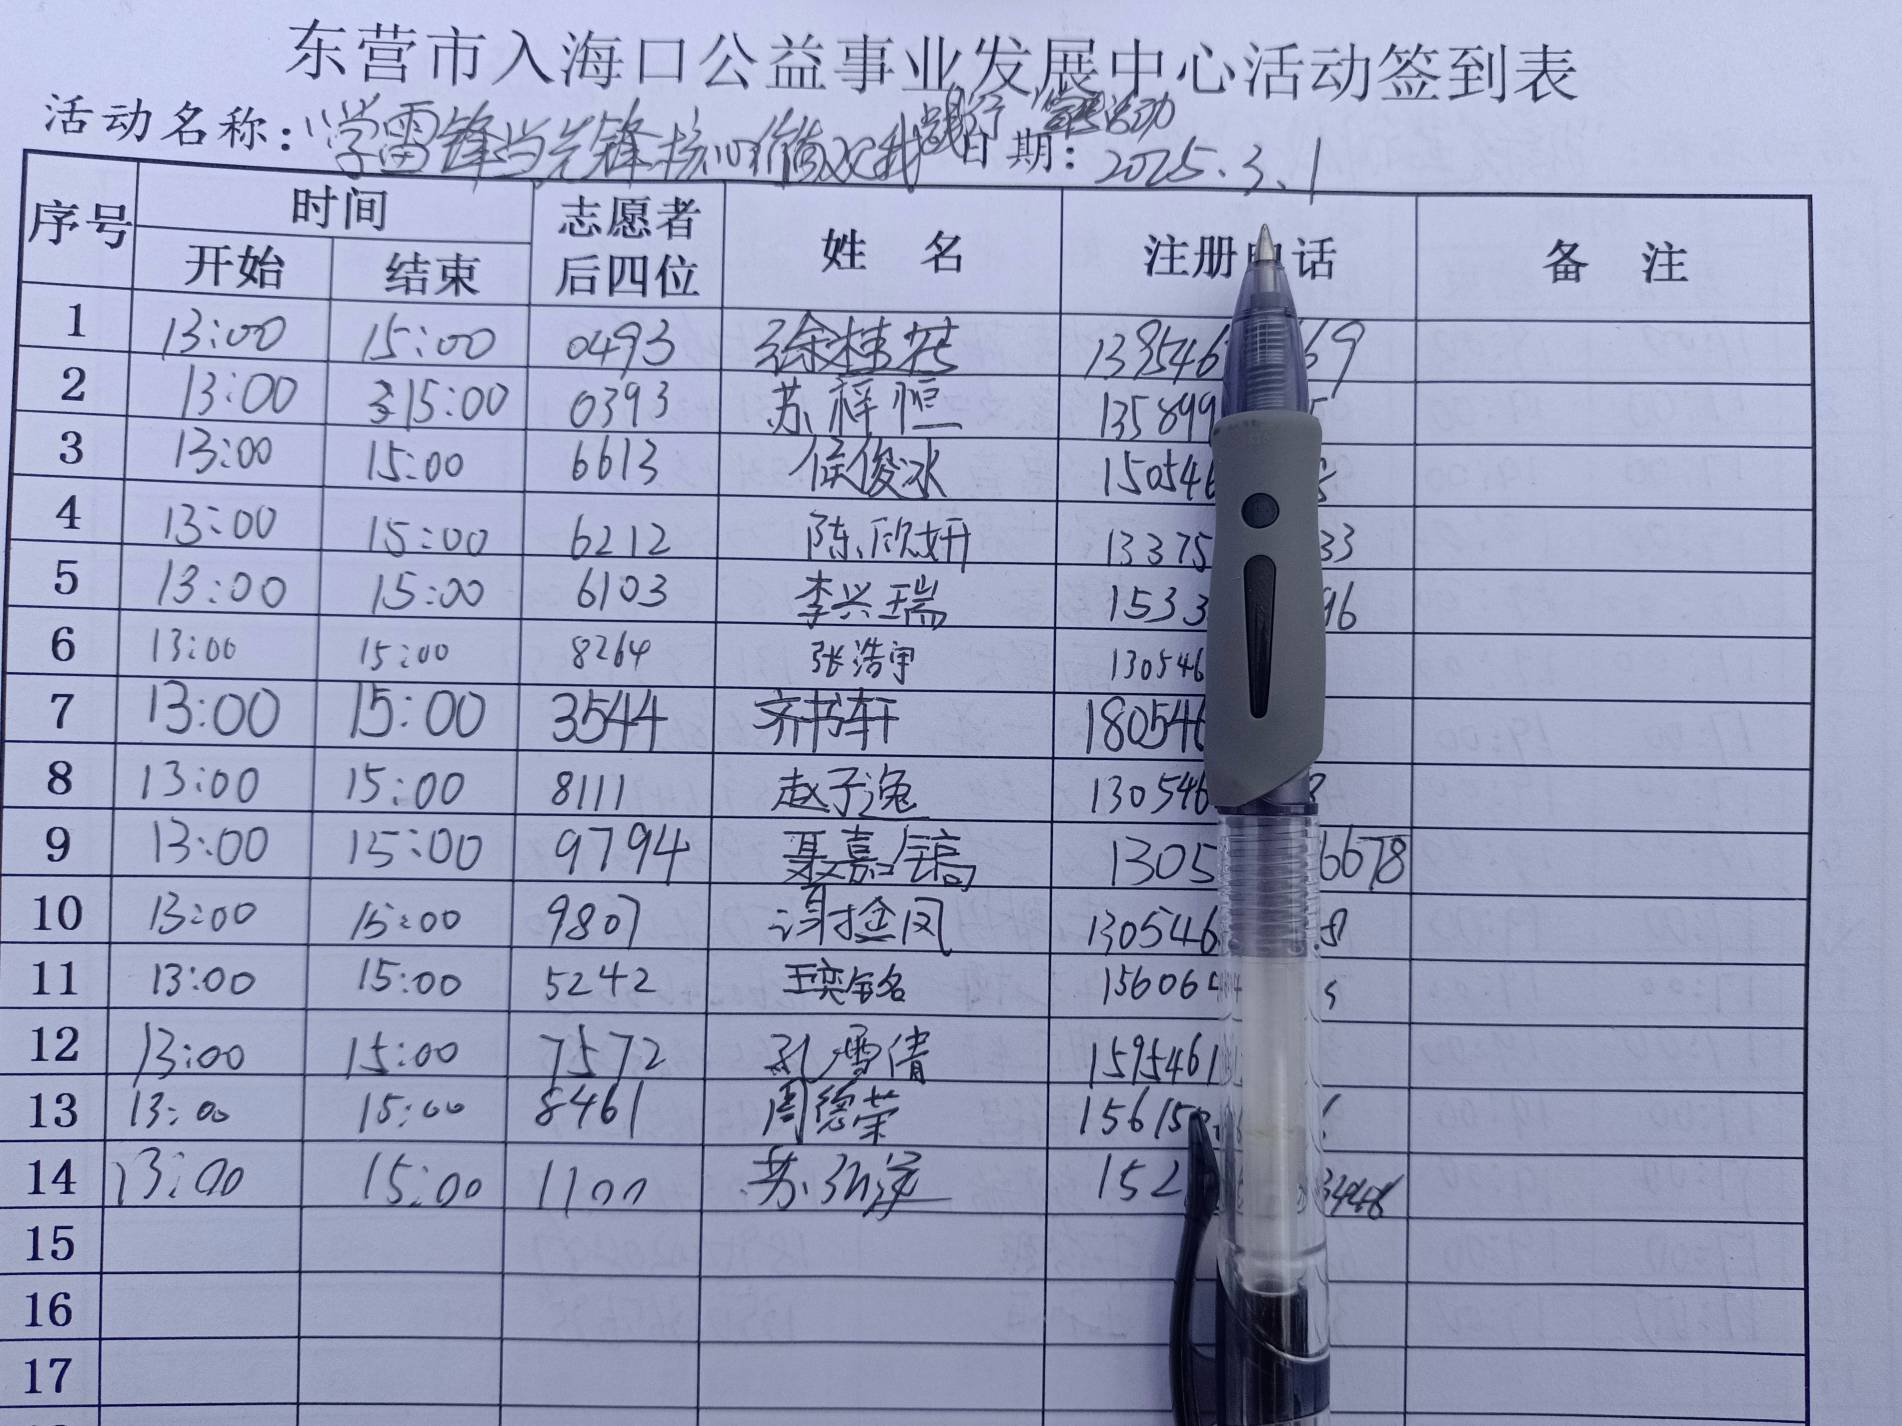 东营市入海口公益事业发展中心活动签到表
活动名称："学雷锋当先锋 核心价值观我践行"宣传活动 日期：2025.3.1
序号 时间 志愿者后四位 姓 名 注册电话 备 注
开始 结束
1 13:00 15:00 0493 徐桂花 1395461 69
2 13:00 15:00 0393 苏梓恒 135899 5
3 13:00 15:00 6613 侯俊冰 150546 8
4 13:00 15:00 6212 陈欣妍 13375 33
5 13:00 15:00 6103 李兴瑞 1533 96
6 13:00 15:00 8264 张浩宇 130546
7 13:00 15:00 3544 齐书轩 180546
8 13:00 15:00 8111 赵子逸 130546
9 13:00 15:00 9794 聂嘉镐 1305 6678
10 13:00 15:00 9807 谢金凤 130546 8
11 13:00 15:00 5242 王奕名 156064 5
12 13:00 15:00 7572 孔雪倩 1595461
13 13:00 15:00 8461 周德荣 15615
14 13:00 15:00 1100 苏 152
15
16
17